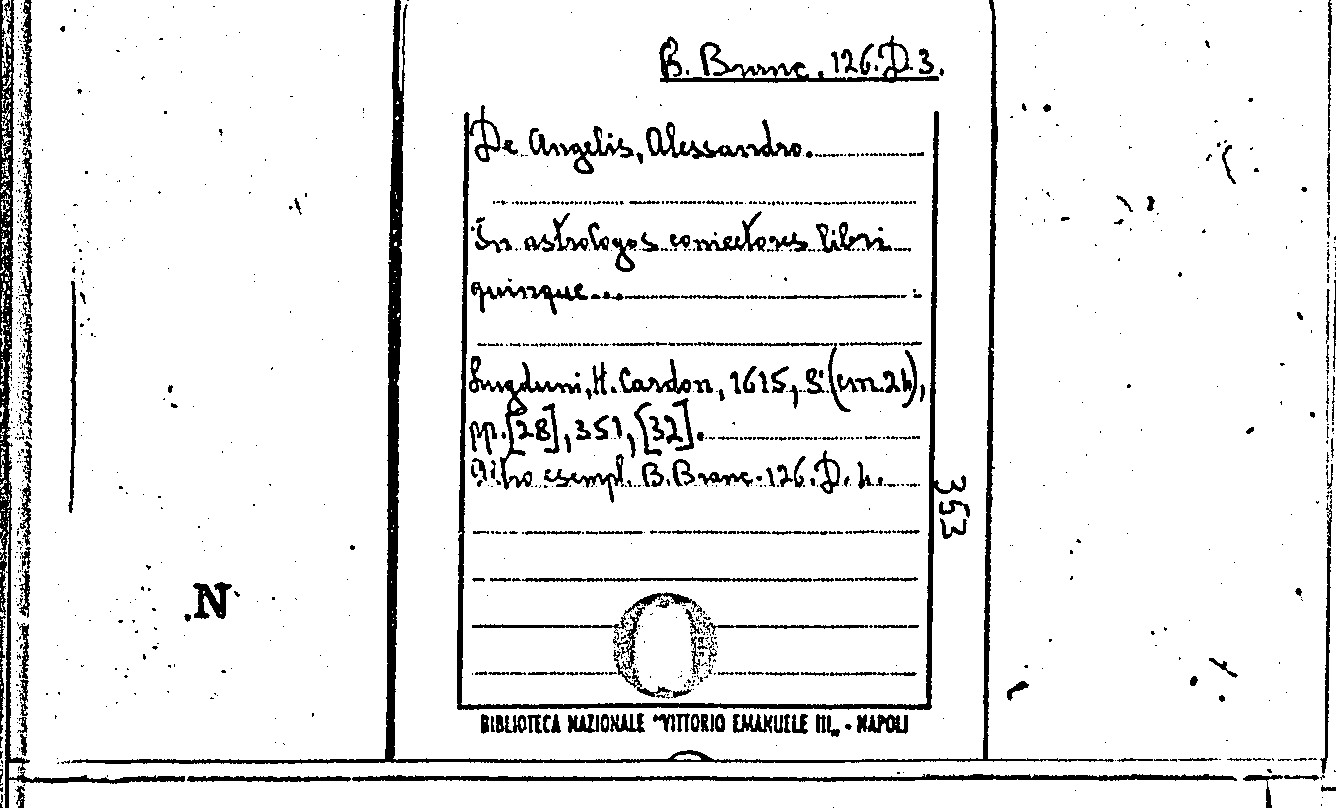 B. Branc. 126.D.3.
De Angelis, Alessandro.
In astrologos coniectores libri
quinque...
Lugduni, H. Cardon, 1615, 8°(cm.24),
pp.[28], 351, [32].
Altro esempl. B. Branc. 126. D. 4.
353
.N
BIBLIOTECA NAZIONALE "VITTORIO EMANUELE III„ - NAPOLI